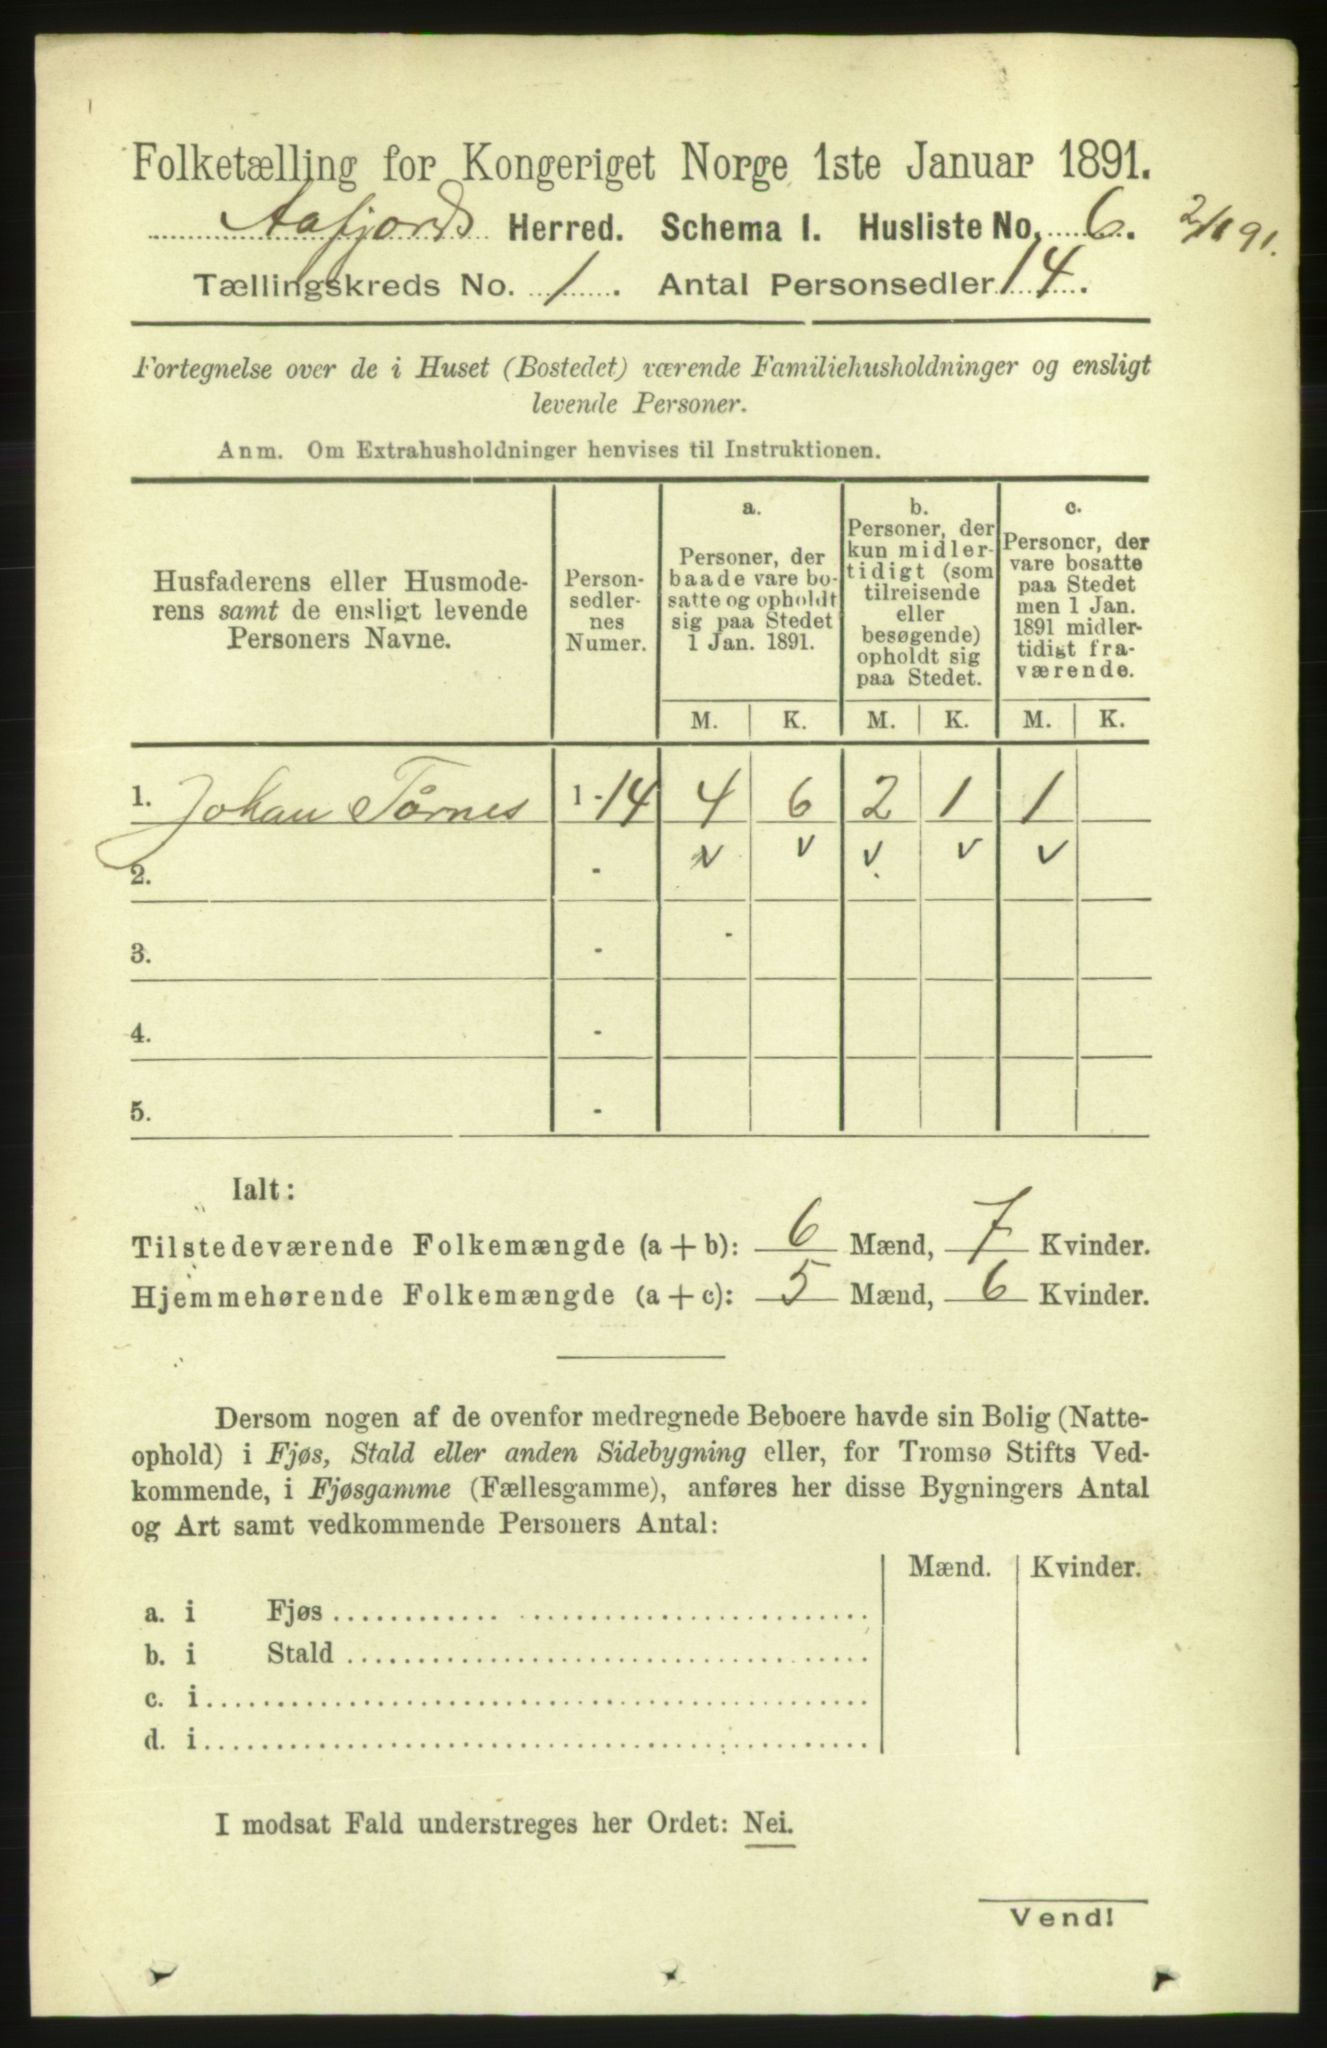 Folketælling for Kongeriget Norge 1ste Januar 1891.
Aafjords Herred. Schema I. Husliste No. 6. 2/1 91.
Tællingskreds No. 1. Antal Personsedler 14.
Fortegnelse over de i Huset (Bostedet) værende Familiehusholdninger og ensligt
levende Personer.
Anm. Om Extrahusholdninger henvises til Instruktionen.
Husfaderens eller Husmode-
rens samt de ensligt levende
Personers Navne.
Person-
sedler-
nes
Numer.
a.
Personer, der
baade vare bo-
satte og opholdt
sig paa Stedet
1 Jan. 1891.
b.
Personer, der
kun midler-
tidigt (som
tilreisende
eller
besøgende)
opholdt sig
paa Stedet.
c.
Personer, der
vare bosatte
paa Stedet
men 1 Jan.
1891 midler-
tidigt fra-
værende.
M. K. M. K. M. K.
1. Johan Tårnes 1-14 4 6 2 1 1
2. - v v v v v
3. -
4. -
5. -
Ialt:
Tilstedeværende Folkemængde (a + b): 6 Mænd, 7 Kvinder.
Hjemmehørende Folkemængde (a + c): 5 Mænd, 6 Kvinder.
Dersom nogen af de ovenfor medregnede Beboere havde sin Bolig (Natte-
ophold) i Fjøs, Stald eller anden Sidebygning eller, for Tromsø Stifts Ved-
kommende, i Fjøsgamme (Fællesgamme), anføres her disse Bygningers Antal
og Art samt vedkommende Personers Antal:
Mænd. Kvinder.
a. i Fjøs
b. i Stald
c. i
d. i
I modsat Fald understreges her Ordet: Nei.
Vend!